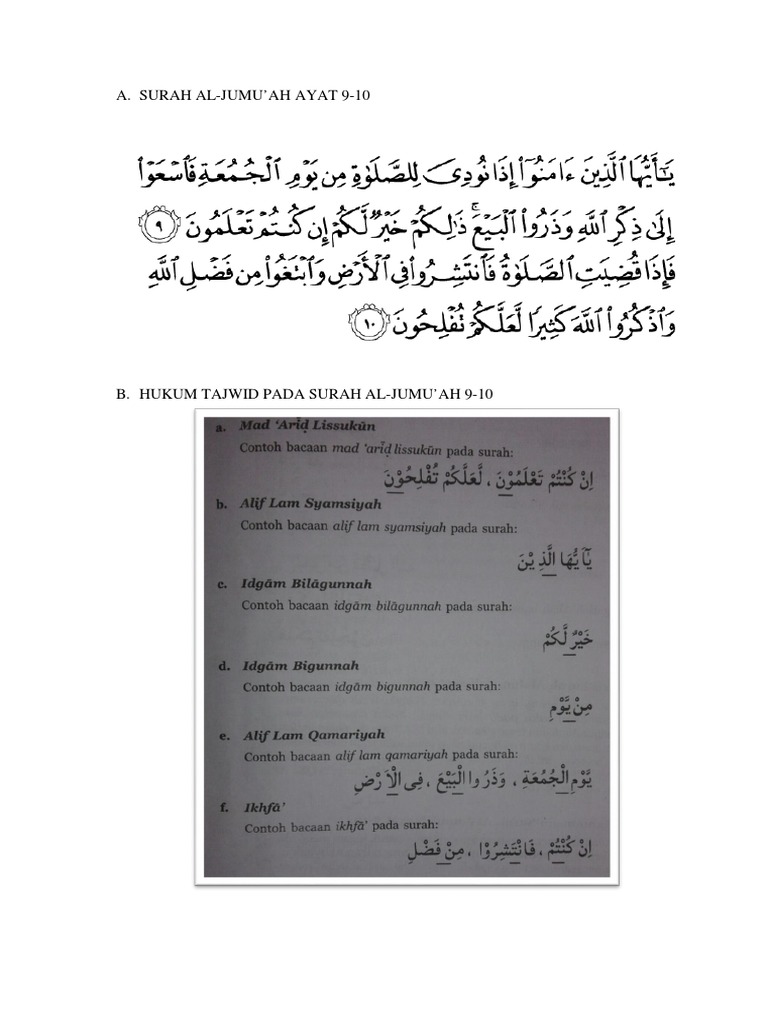 A. SURAH AL-JUMU'AH AYAT 9-10
يَٰٓأَيُّهَا ٱلَّذِينَ ءَامَنُوٓا۟ إِذَا نُودِىَ لِلصَّلَوٰةِ مِن يَوْمِ ٱلْجُمُعَةِ فَٱسْعَوْا۟
إِلَىٰ ذِكْرِ ٱللَّهِ وَذَرُوا۟ ٱلْبَيْعَ ۚ ذَٰلِكُمْ خَيْرٌ لَّكُمْ إِن كُنتُمْ تَعْلَمُونَ ٩
فَإِذَا قُضِيَتِ ٱلصَّلَوٰةُ فَٱنتَشِرُوا۟ فِى ٱلْأَرْضِ وَٱبْتَغُوا۟ مِن فَضْلِ ٱللَّهِ
وَٱذْكُرُوا۟ ٱللَّهَ كَثِيرًا لَّعَلَّكُمْ تُفْلِحُونَ ١٠
B. HUKUM TAJWID PADA SURAH AL-JUMU'AH 9-10
a. Mad 'Ariḍ Lissukūn
Contoh bacaan mad 'ariḍ lissukūn pada surah:
اِنْ كُنْتُمْ تَعْلَمُوْنَ ، لَعَلَّكُمْ تُفْلِحُوْنَ
b. Alif Lam Syamsiyah
Contoh bacaan alif lam syamsiyah pada surah:
يَآيُّهَا الَّذِيْنَ
c. Idgām Bilāgunnah
Contoh bacaan idgām bilāgunnah pada surah:
خَيْرٌ لَّكُمْ
d. Idgām Bigunnah
Contoh bacaan idgām bigunnah pada surah:
مِنْ يَّوْمِ
e. Alif Lam Qamariyah
Contoh bacaan alif lam qamariyah pada surah:
يَّوْمِ الْجُمُعَةِ ، وَذَرُوا الْبَيْعَ ، فِى الْاَرْضِ
f. Ikhfā'
Contoh bacaan ikhfā' pada surah:
اِنْ كُنْتُمْ ، فَانْتَشِرُوْا ، مِنْ فَضْلِ